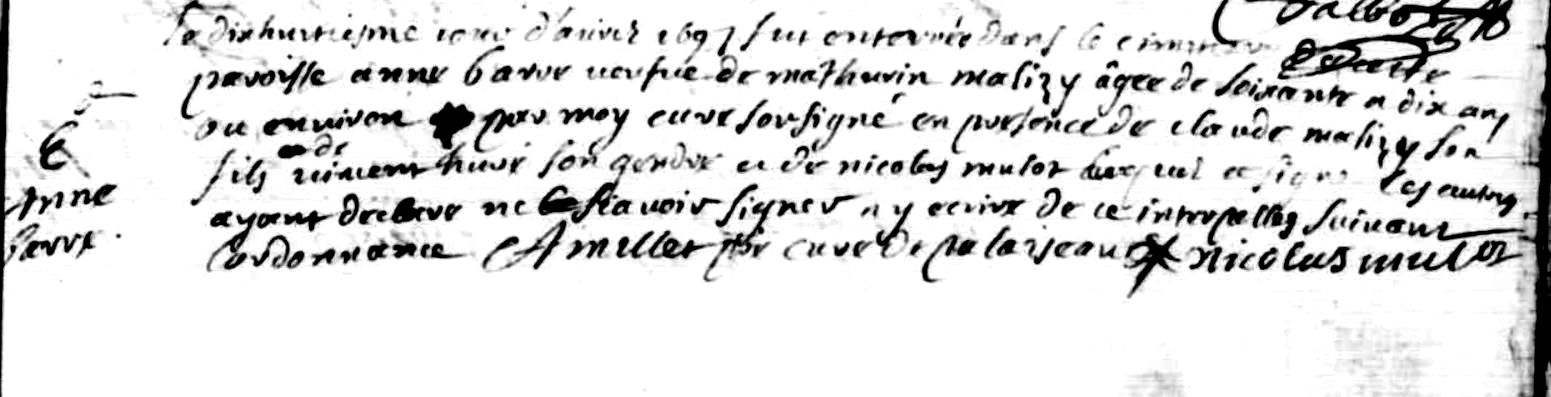 Le dixhuictiesme jour d'avril 1697 fut enterrée dans le cimetiere
paroisse anne barre veufue de mathurin malizy âgée de soixante et dix ans
6
ou environ par moy curé soussigné en presence de claude malizy son
fils de vincent huré son gendre et de nicolas mulot lequel a signé les autres
Anne
ayant declaré ne sçavoir signer ny ecrire de ce interpellés suivant
barre.
l'ordonnance A millet ptre curé de palaiseau nicolas mulot